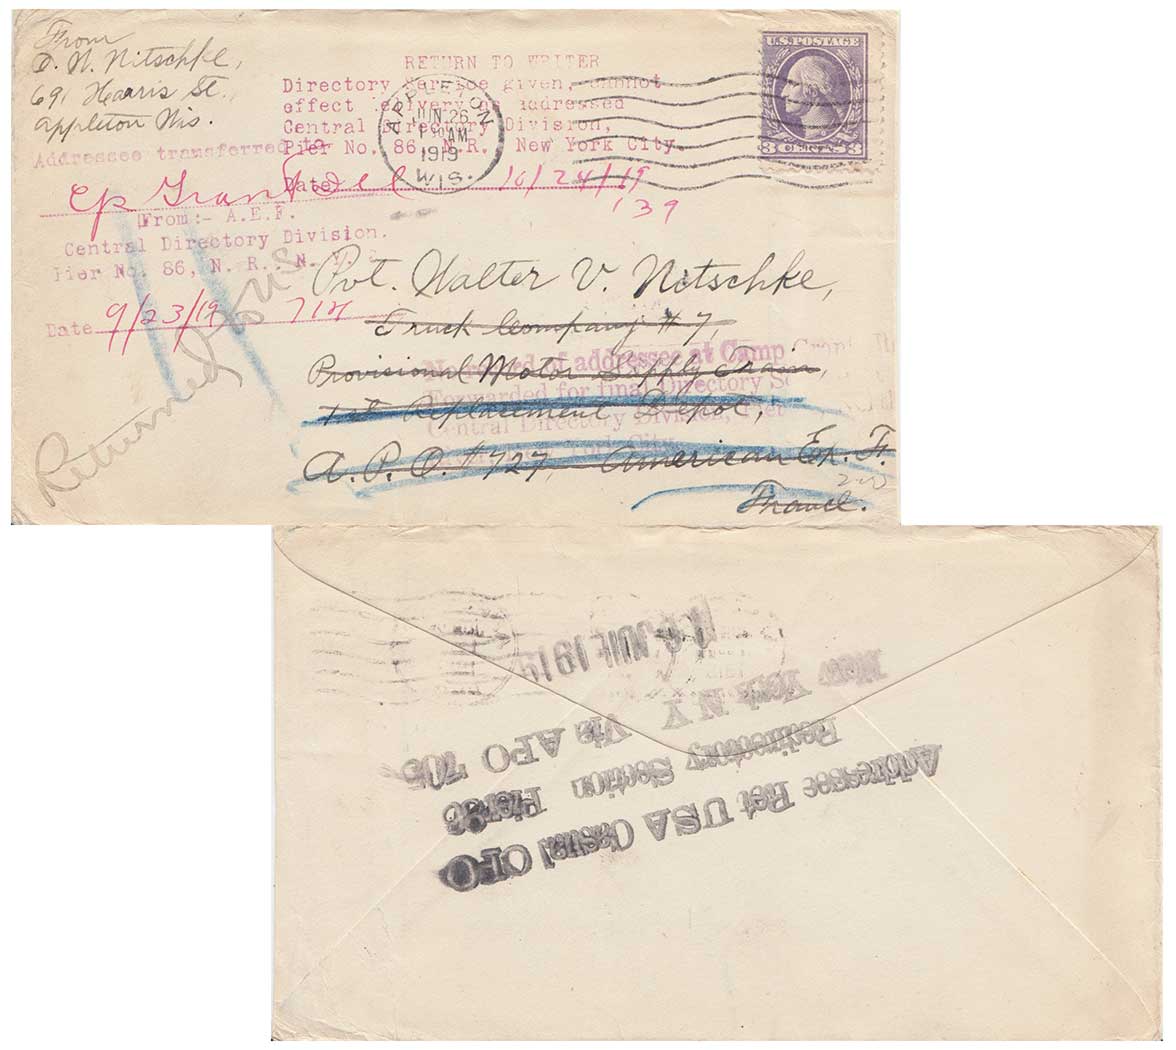 From
D. N. Nitschke,
691 Harris St.
Appleton Wis.
RETURN TO WRITER
Directory Service given, cannot
effect delivery as addressed
Central Directory Division,
Pier No. 86, N.R. New York City.
Date 10/24/19
139
APPLETON
JUN 26
AM
1919
WIS.
U.S. POSTAGE
3 CENTS 3
Addressee transferred to
Cp Grant
From:- A.E.F.
Central Directory Division.
Pier No. 86, N. R., N. Y.
Date 9/23/19 714
Returned to U S
Pvt. Walter V. Nitschke,
Truck Company #7,
Provisional Motor Supply Train,
1st Replacement Depot,
A. P. O. #727, American Ex. F.
France.
No record of addressee at Camp Grant
Forwarded for final Directory
Central Directory Division, Pier
York City.
Addressee Ret USA Casual OFO
Redirectory Section Pier 86
New York N Y Via APO 705
JUIL 1919